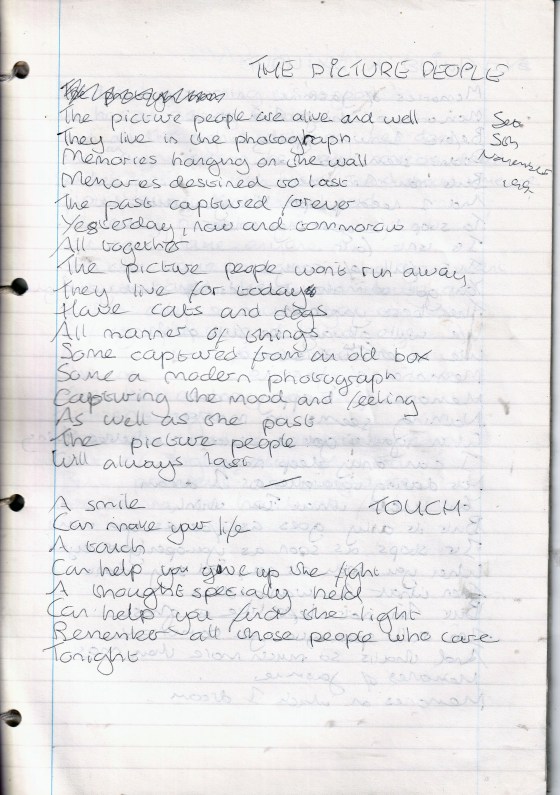 THE PICTURE PEOPLE
The picture people are alive and well
They live in the photograph
Memories hanging on the wall
Memories destined to last
The past captured forever
Yesterday, now and tommorow
All together
The picture people wont run away
They live for today
Have cats and dogs
All manner of things
Some captured from an old box
Some a modern photograph
Capturing the mood and feeling
As well as the past
The picture people
Will always last
5th
November
TOUCH
A smile
Can make your life
A touch
Can help you give up the fight
A thought specially held
Can help you find the light
Remember all those people who care
Tonight